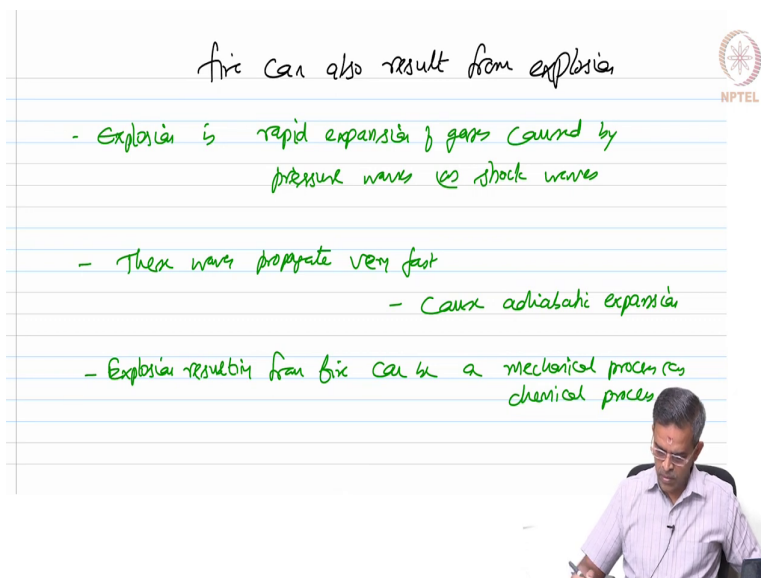 fire can also result from explosion
NPTEL
- Explosion is rapid expansion of gases caused by
pressure waves (or) shock waves
- These waves propagate very fast
- Cause adiabatic expansion
- Explosion resulting from fire can be a mechanical process (or)
chemical process